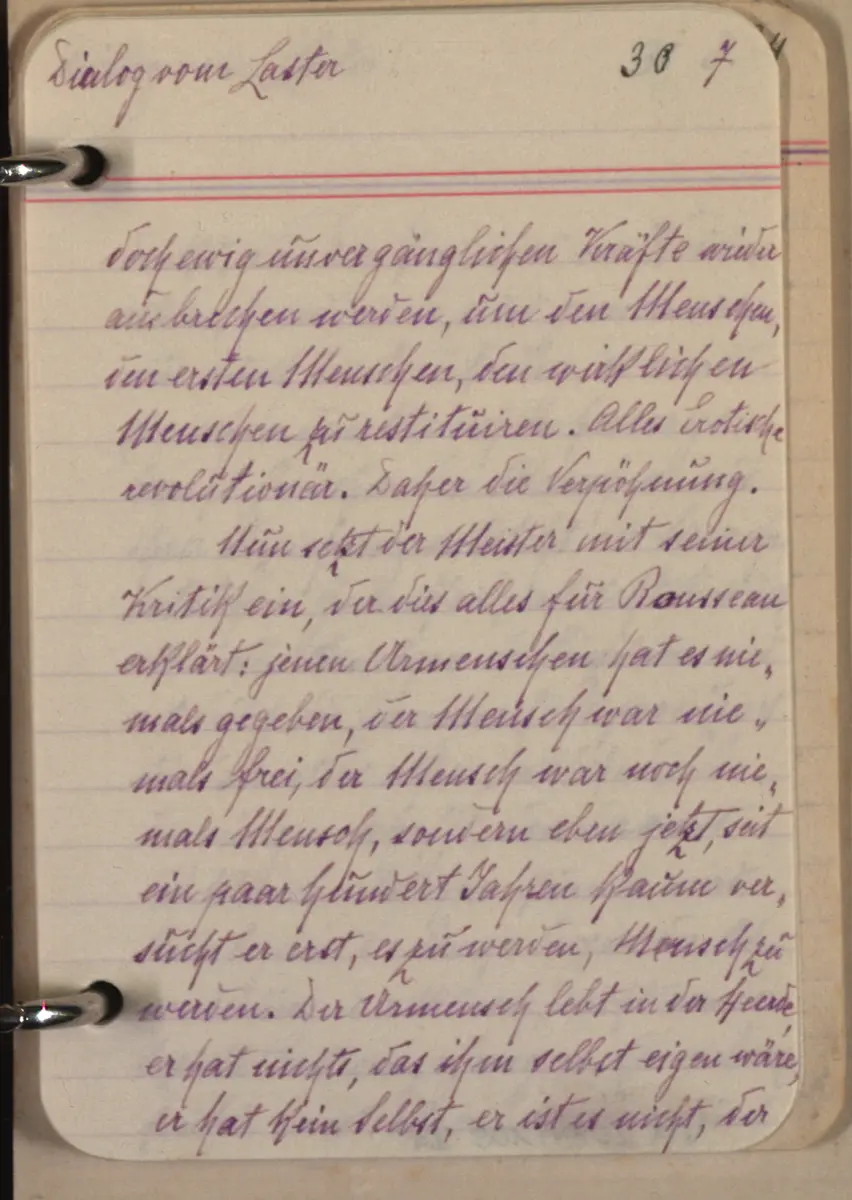 Dialog vom Laster 30 7
doch ewig unvergänglichen Kräfte wieder
ausbrechen werden, um den Menschen,
den ersten Menschen, den wirklichen
Menschen zu restituiren. Alles Erotische
revolutionär. Daher die Verpöhnung.
Nun setzt der Meister mit seiner
Kritik ein, der dies alles für Rousseau
erklärt: jenen Urmenschen hat es nie„
mals gegeben, der Mensch war nie„
mals frei, der Mensch war noch nie„
mals Mensch, sondern eben jetzt, seit
ein paar hundert Jahren kaum ver„
sucht er erst, es zu werden, Mensch zu
werden. Der Urmensch lebt in der Heerde,
er hat nichts, das ihm selbst eigen wäre,
er hat kein Selbst, er ist es nicht, der